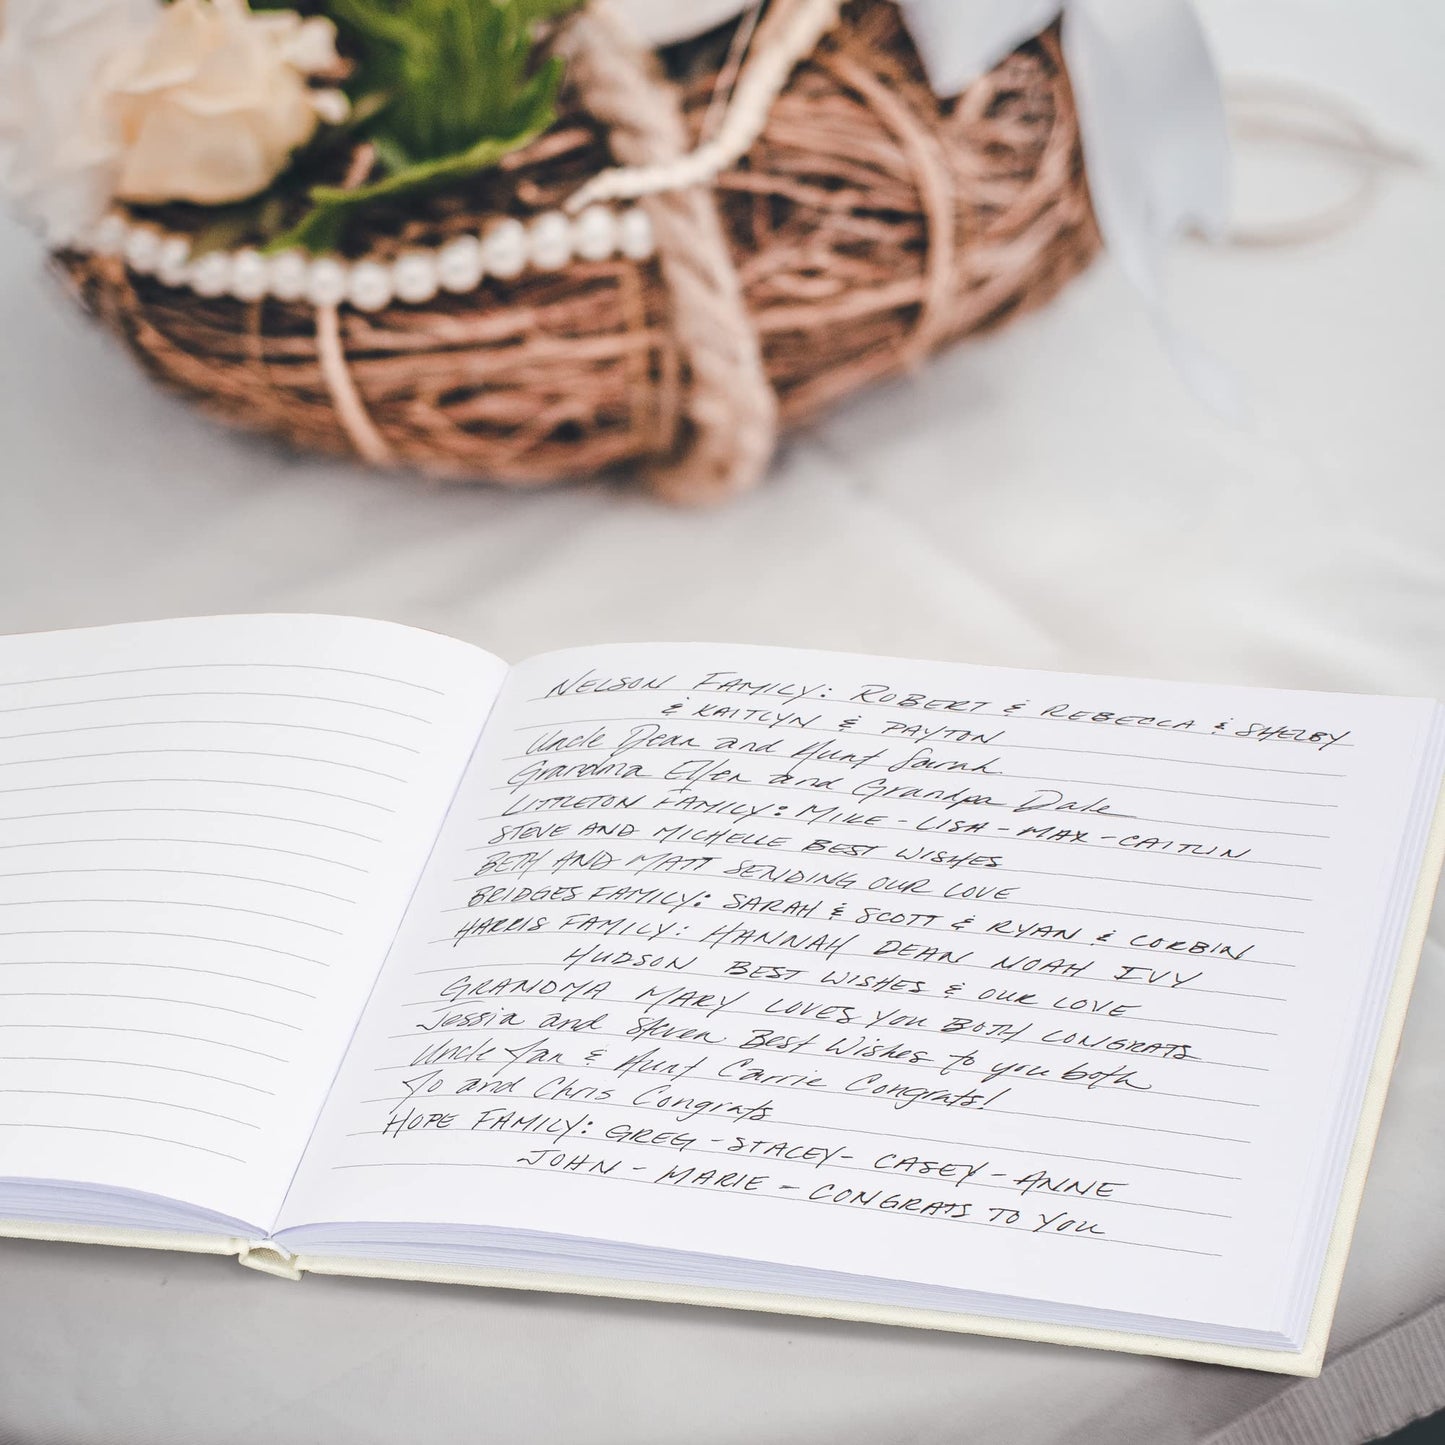 NELSON FAMILY: ROBERT & REBECCA & SHELBY
& KAITLYN & PAYTON
Uncle Dean and Aunt Sarah
Grandma Ellen and Grandpa Dale
LITTLETON FAMILY: MIKE - LISA - MAX - CAITLIN
STEVE AND MICHELLE BEST WISHES
BETH AND MATT SENDING OUR LOVE
BRIDGES FAMILY: SARAH & SCOTT & RYAN & CORBIN
HARRIS FAMILY: HANNAH DEAN NOAH IVY
HUDSON BEST WISHES & OUR LOVE
GRANDMA MARY LOVES YOU BOTH CONGRATS
Jessia and Steven Best Wishes to you both
Uncle Ian & Aunt Carrie Congrats!
Jo and Chris Congrats
HOPE FAMILY: GREG - STACEY - CASEY - ANNE
JOHN - MARIE - CONGRATS TO YOU